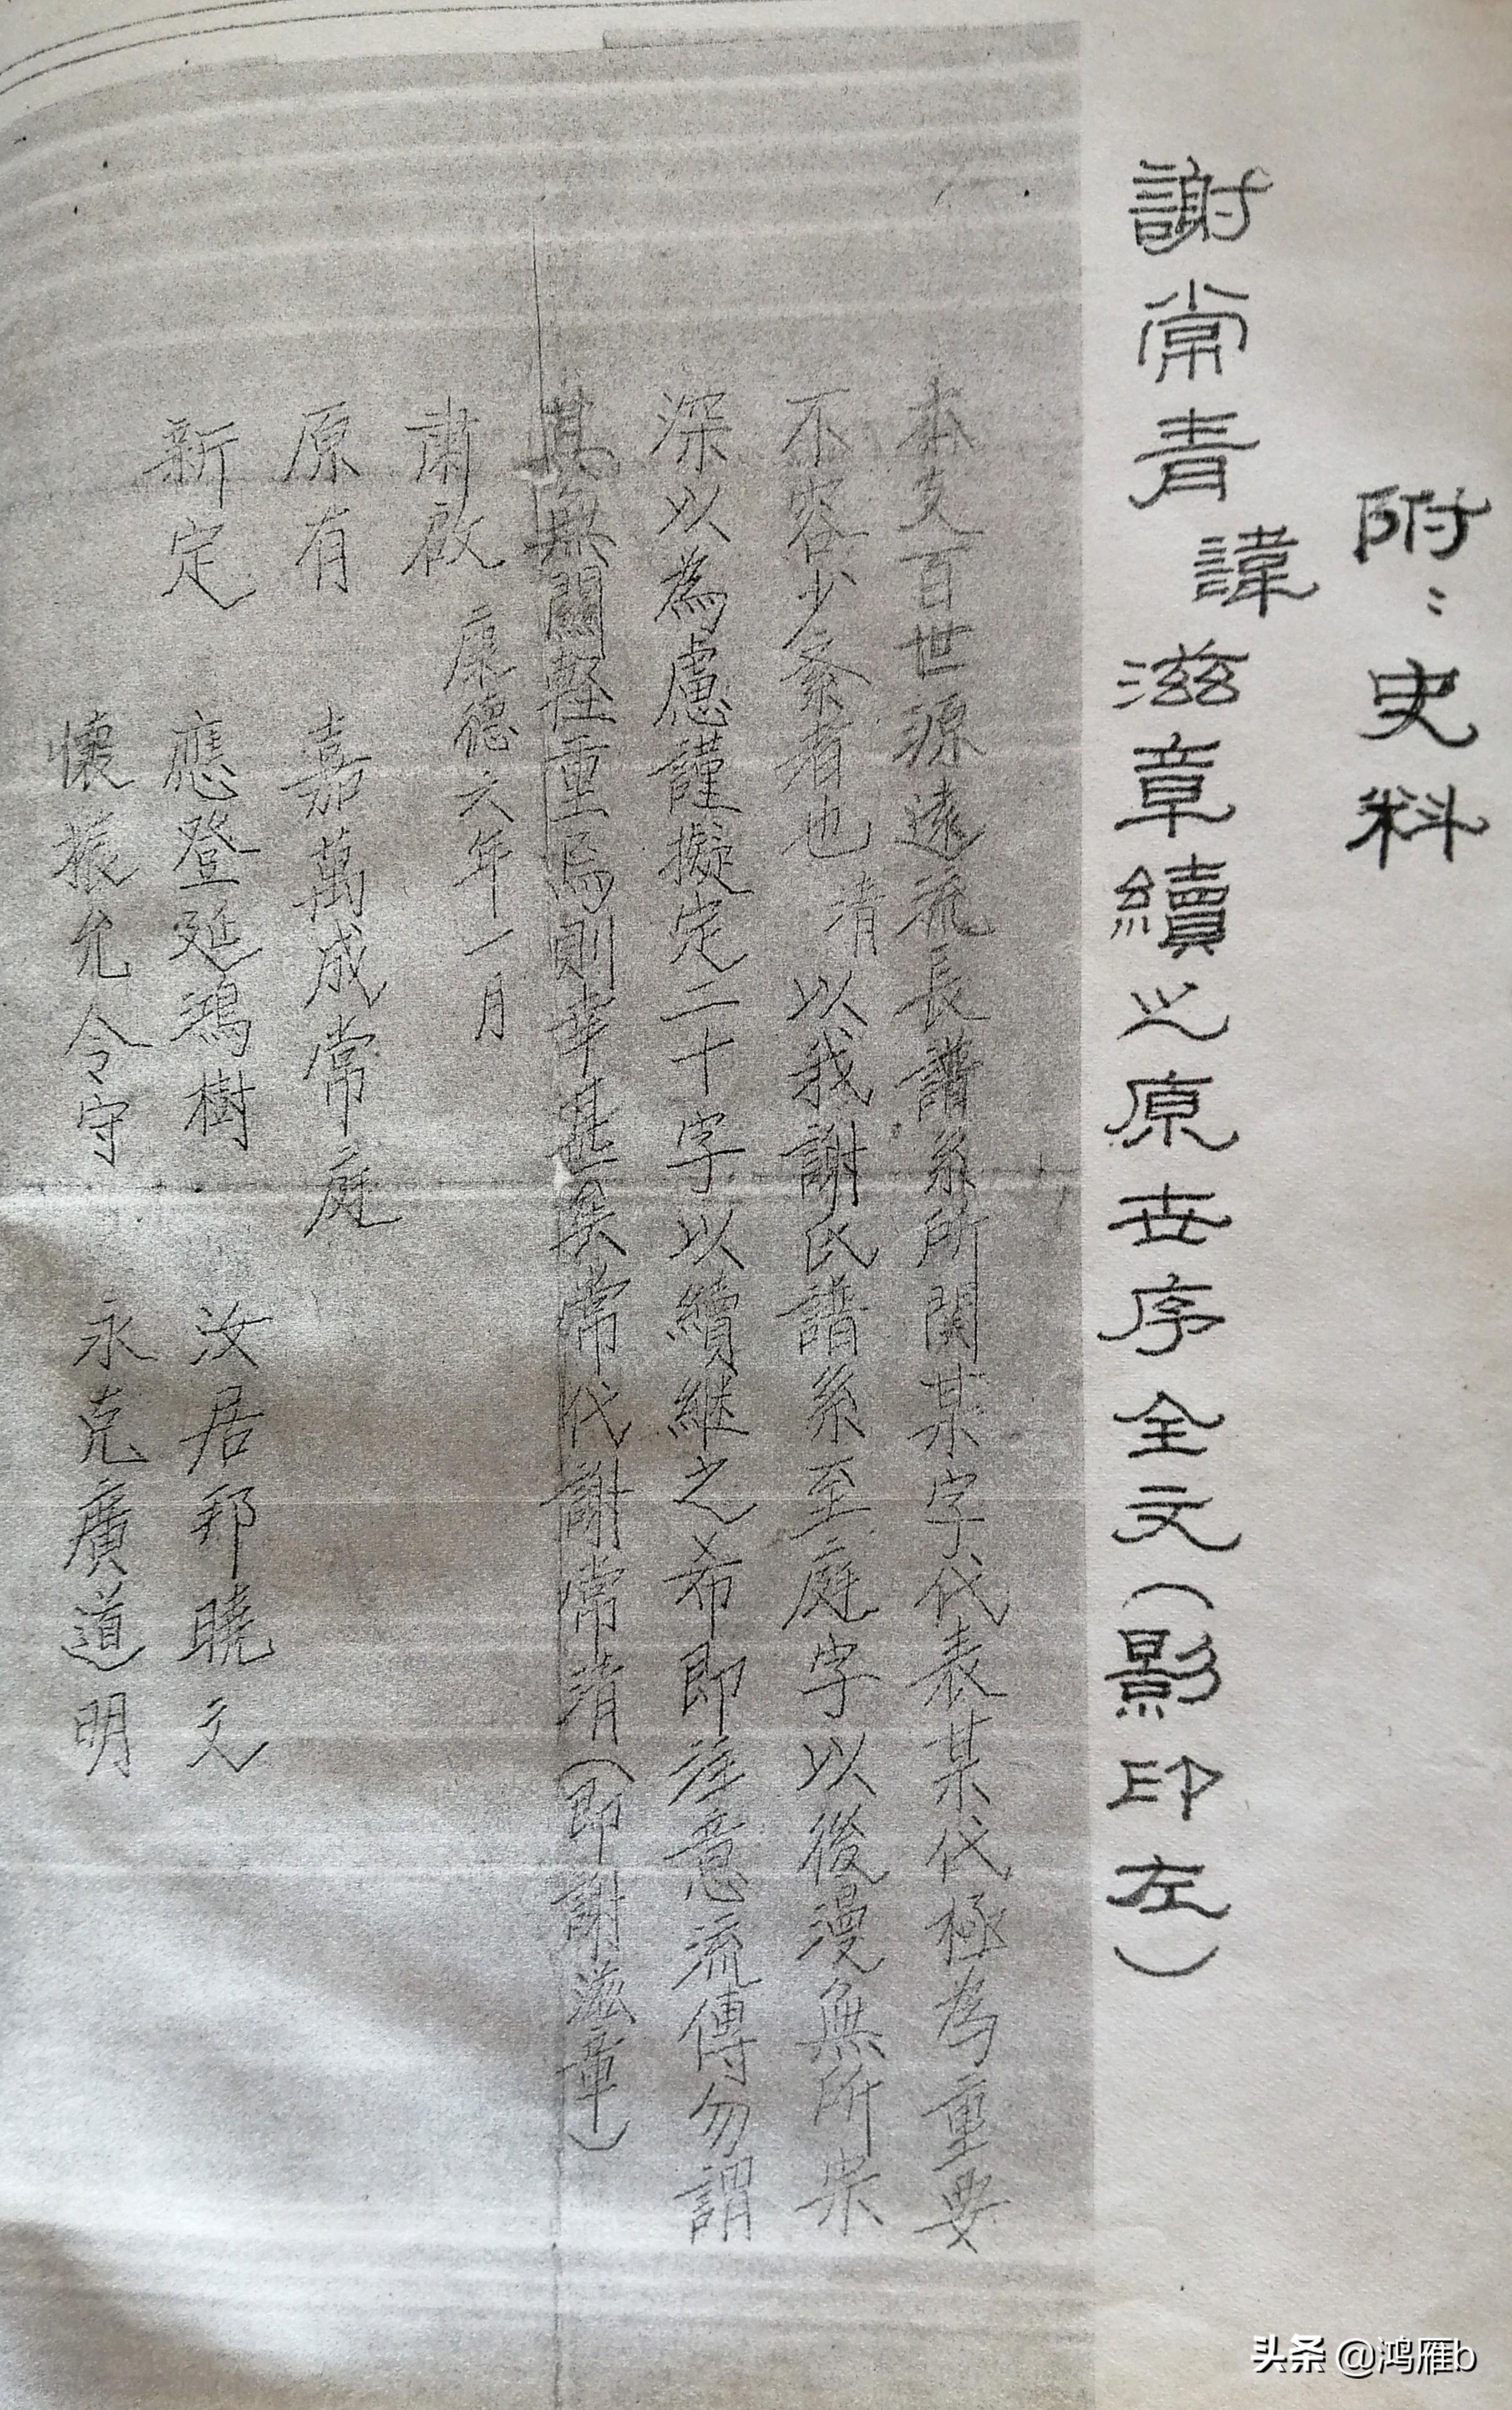 附：史料
謝常青諱滋章續之原世序全文（影印左）
本支百世源遠流長譜系所関某字代表某代極為重要
不容少紊者也清以我謝氏譜系至庭字以後漫無所崇
深以為慮謹擬定二十字以續継之希即注意流傳勿謂
其無關輕重焉則幸甚矣常代謝常清（即謝滋章）
肅啟 康德六年一月
原有 嘉萬成常庭
新定 應登延鴻樹 汝居邦曉文
懷振允令守 永克廣道明
头条 @鸿雁b